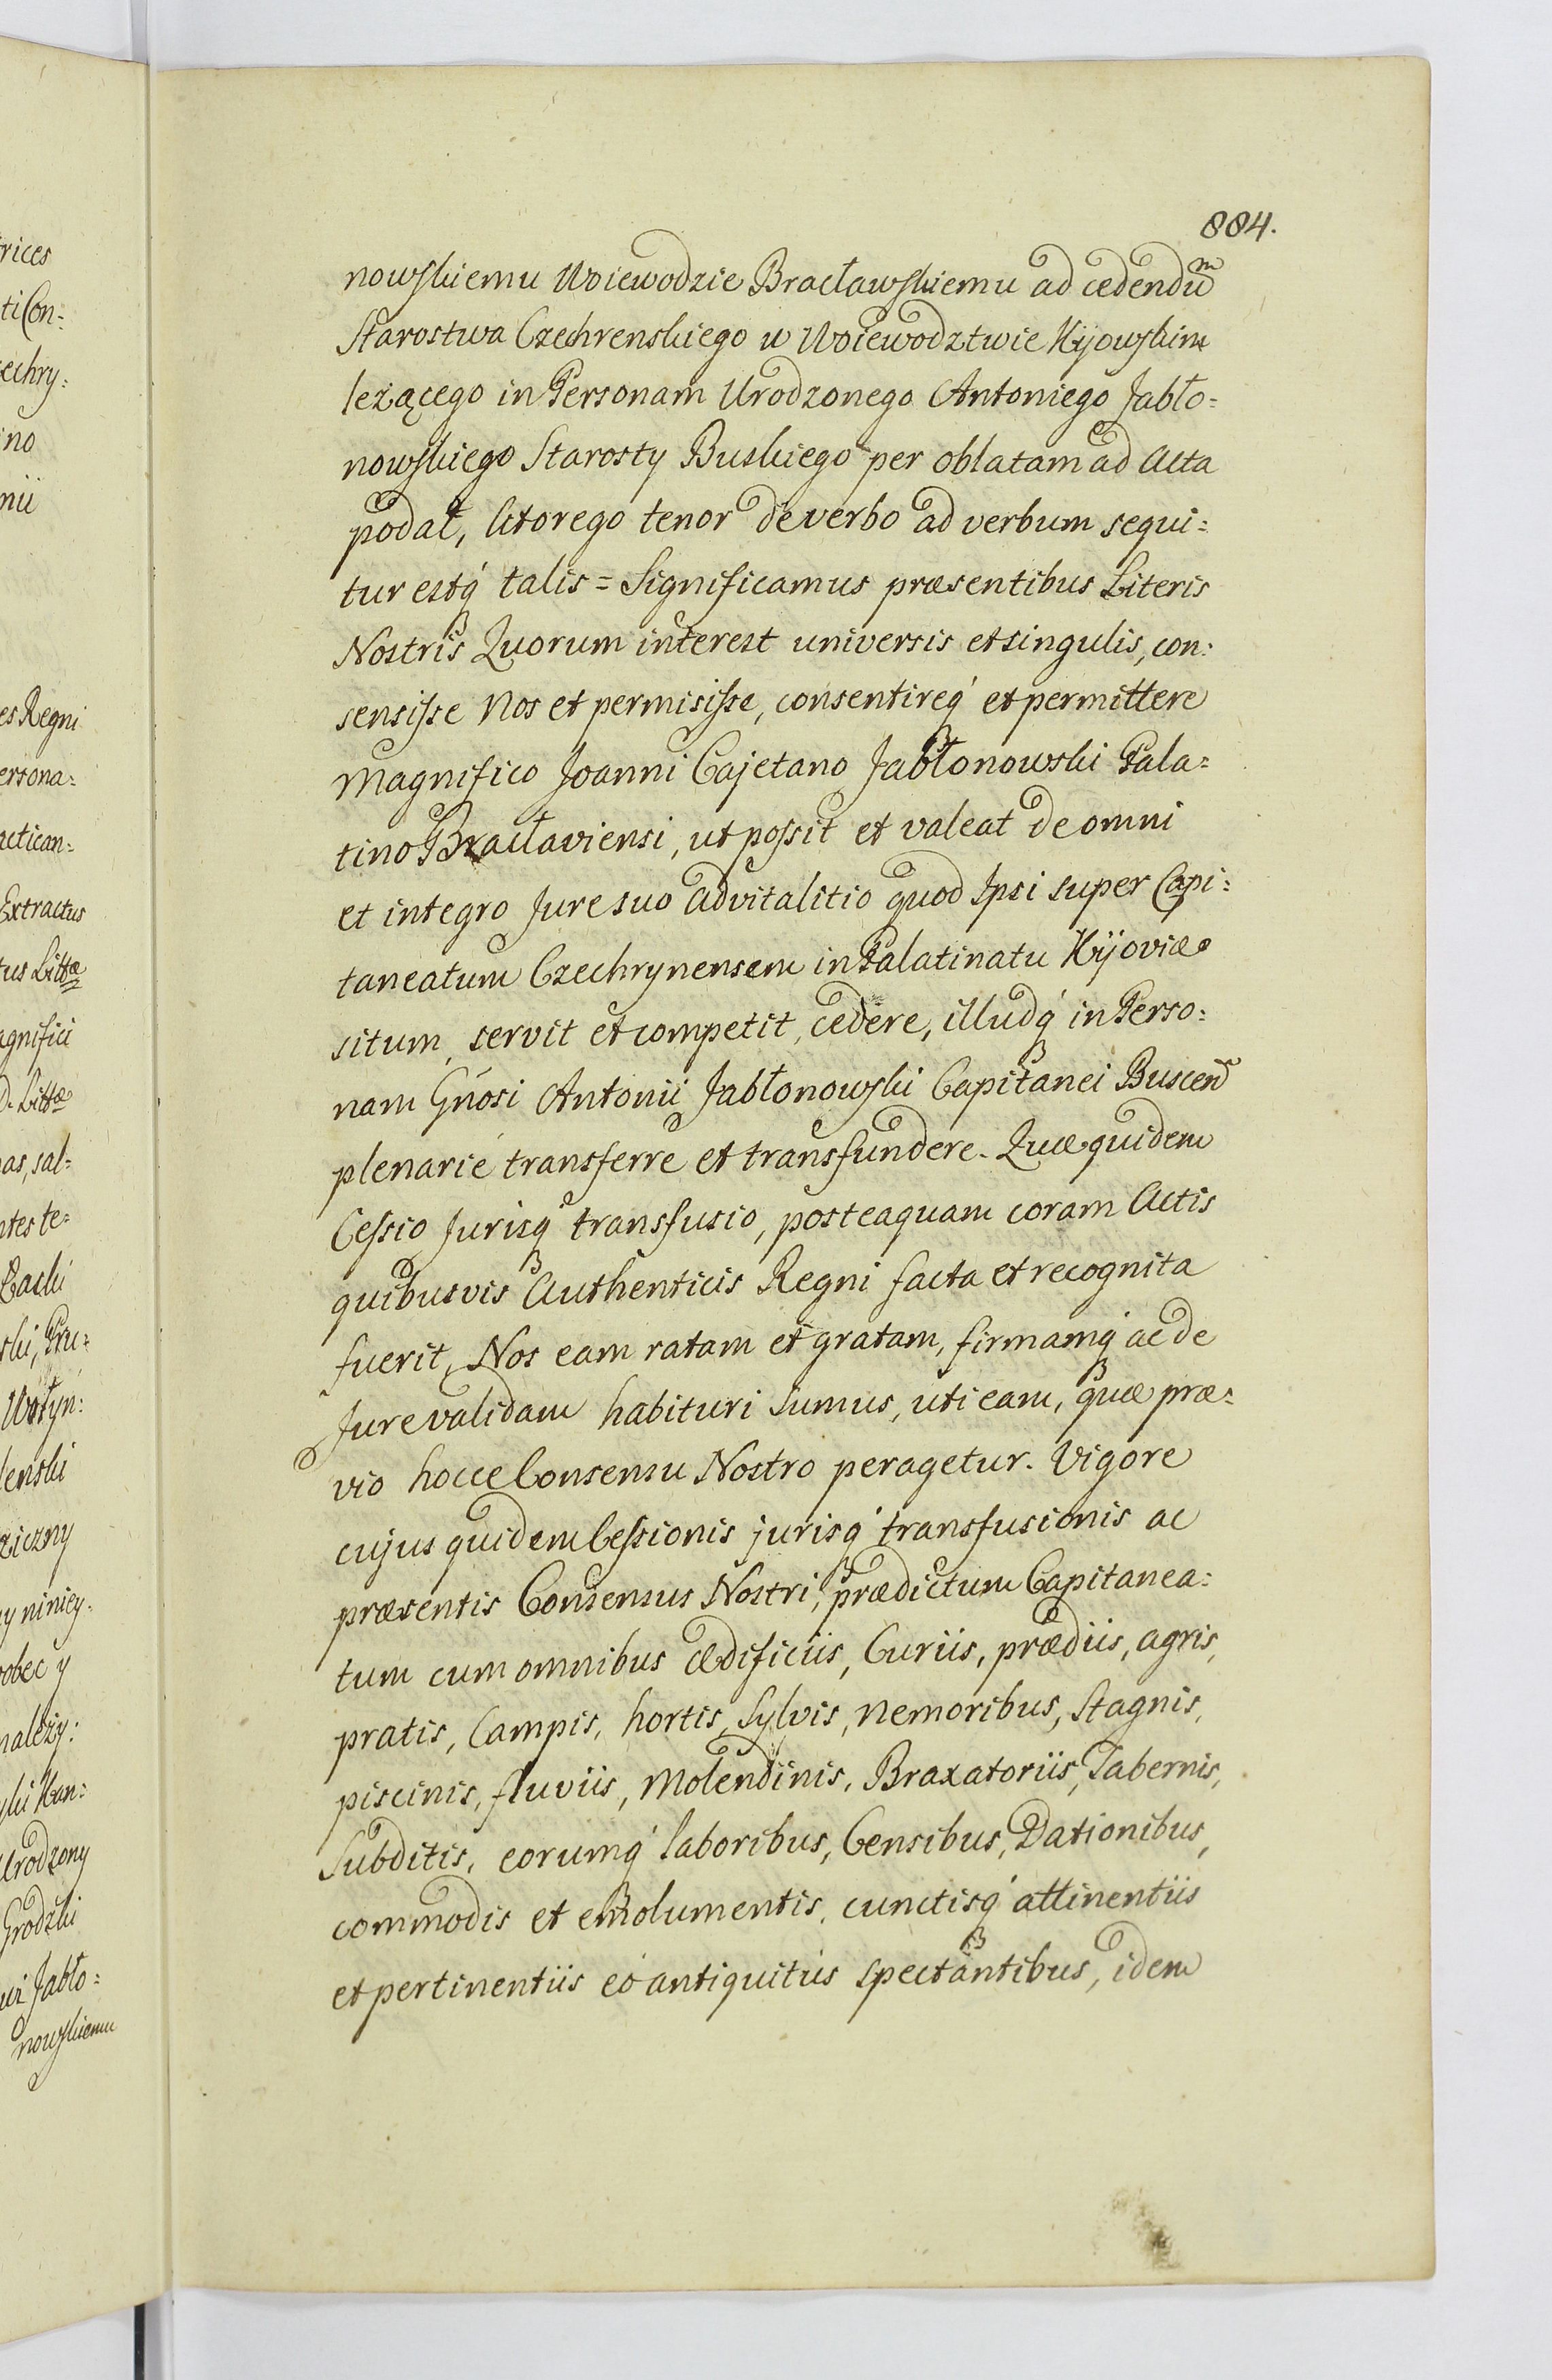 rices
ti Con:
echry:
no
nii
es Regni
ersona:
actican:
Extractus
tus Littæ
agnifici
D. Littæ
as, sal:
ntes te:
Wołyn:
enski
ziczny
y niniey:
obec y
należy:
Urodzony
Grodzki
wi Jabło:
nowskiemu
884.
nowskiemu Woiewodzie Bracławskiemu ad cedendũm
Starostwa Czechrenskiego w Woiewodztwie Kijowskim
leżącego in Personam Urodzonego Antoniego Jabło:
nowskiego Starosty Buskiego per oblatam ad Acta
podał, ktorego tenor de verbo ad verbum sequi:
tur estq́ talis = Significamus præsentibus Literis
Nostris Quorum interest universis et singulis, con:
sensisse Nos et permisisse, consentireq́ et permittere
Magnifico Joanni Cajetano Jabłonowski Pala:
tino Bracłaviensi, ut possit et valeat de omni
et integro Jure suo advitalitio quod Ipsi super Capi:
taneatum Czechrynensem in Palatinatu Kijoviæ
situm, servit et competit, cedere, illudq́ in Perso:
nam Gnosi Antonii Jabłonowski Capitanei Buscen̄
plenarie transferre et transfundere. Quæ quidem
Cessio Jurisq́ transfusio, posteaquam coram Actis
quibusvis Authenticis Regni facta et recognita
fuerit, Nos eam ratam et gratam, firmamq́ ac de
Jure validam habituri sumus, uti eam, quæ præ:
vio hocce Consensu Nostro peragetur. Vigore
cujus quidem Cessionis jurisq́ transfusionis ac
præsentis Consensus Nostri, prædictum Capitanea:
tum cum omnibus ædificiis, Curiis, prædiis, agris,
pratis, Campis, hortis, Sylvis, Nemoribus, Stagnis,
piscinis, fluviis, Molendinis, Braxatoriis, Tabernis,
Subditis, eorumq́ laboribus, Censibus, Dationibus,
commodis et emolumentis, cunctisq́ attinentiis
et pertinentiis eó antiquitus spectantibus, idem